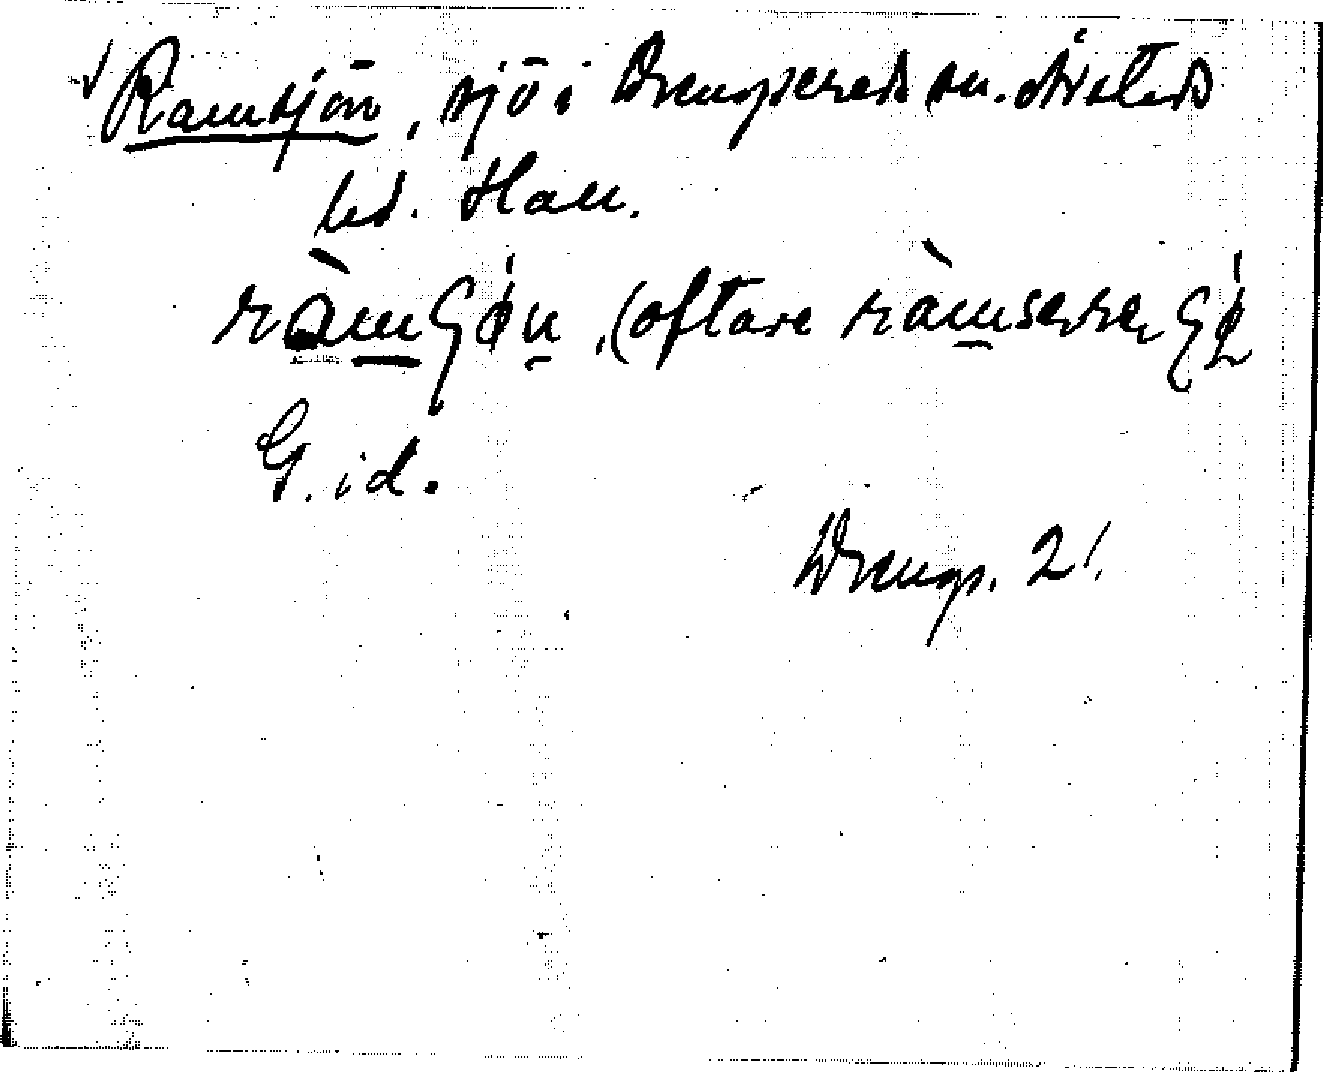 Ramsjön, sjö i Drengsereds sn. Årstads
hd. Hall.
ràmʃøn, (oftare ràmserɐʃø
G. id.
Drengs. 21.